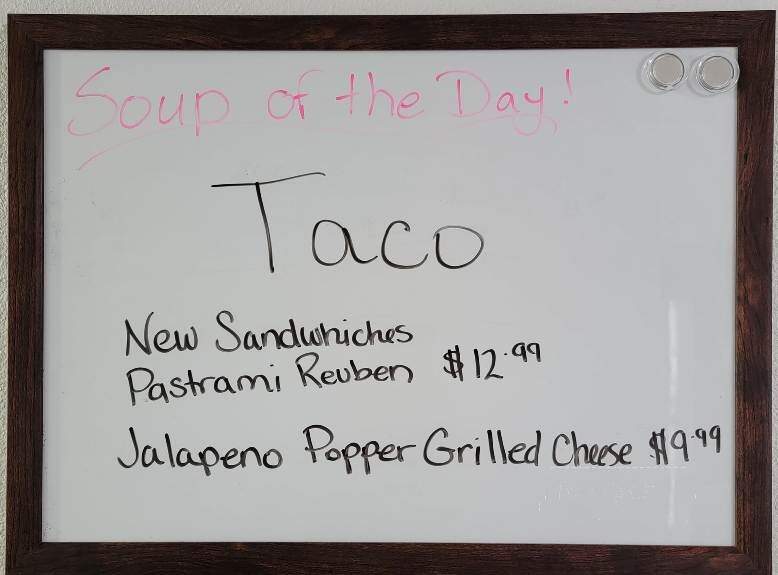 Soup of the Day!
Taco
New Sandwhiches
Pastrami Reuben $12.99
Jalapeno Popper Grilled Cheese $9.99